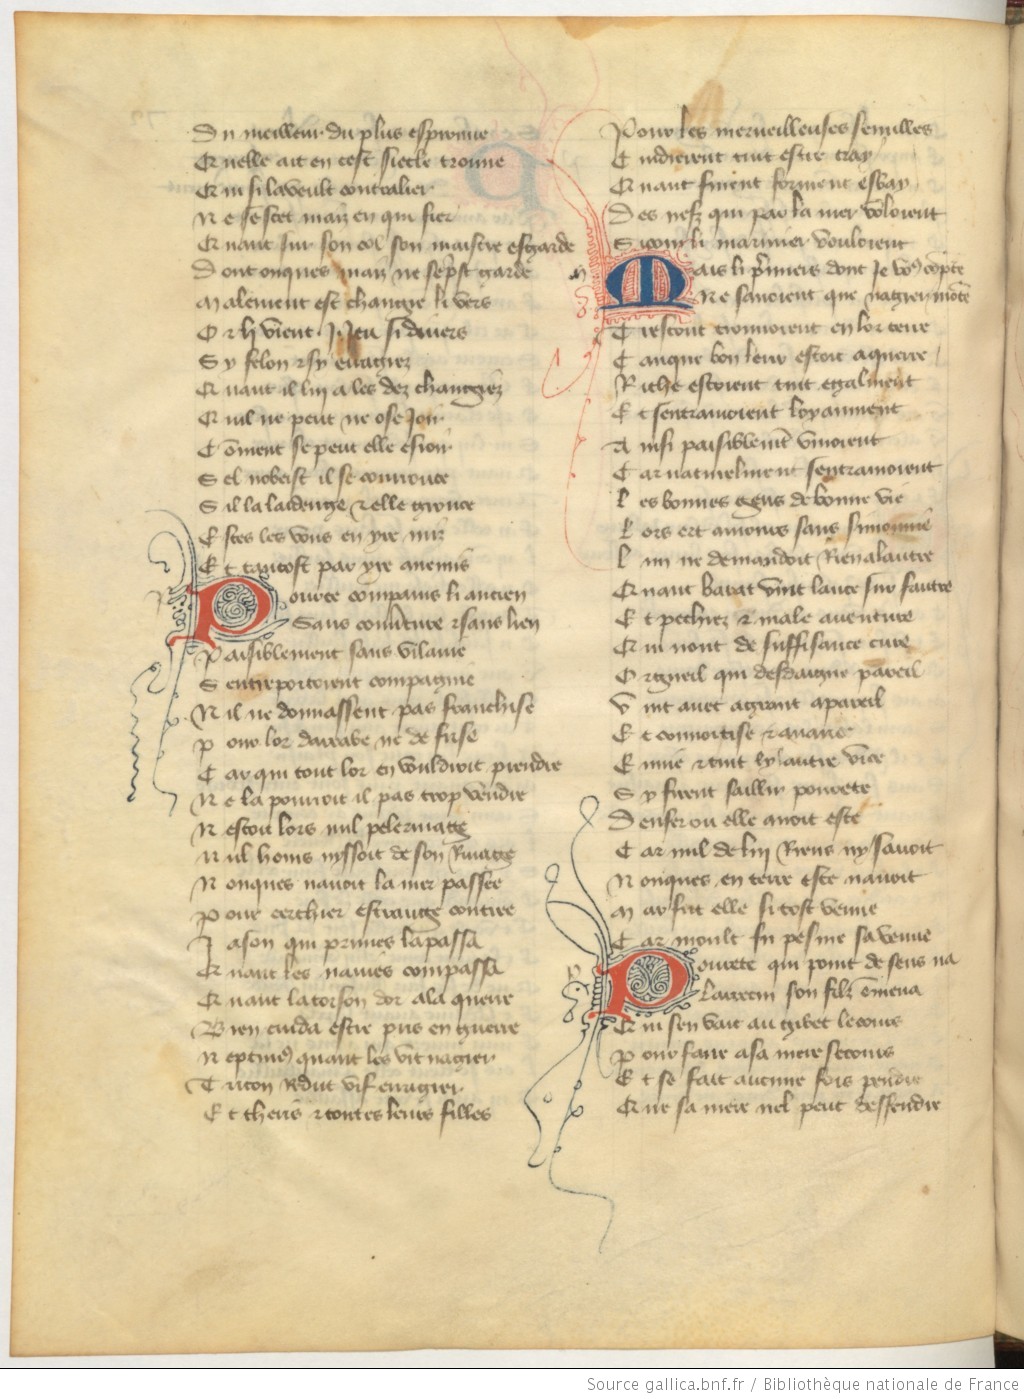 Du meilleur du plus esprouue
Quelle ait en cest siecle trouue
Qui si la veult contralier
Ne sescet mais en qui fier
Quant sur son col son maistre esgarde
Dont onques mais ne se prist garde
Malement est changie li vers
Or li vient .i. Jeu si diuers
Sy felon et sy enragiez
Quant il luy a les dez changiez
Quil ne peut ne ose Joir
Coment se peut elle esioir
Sel nobeist il se courouce
Sil la laidenge et elle grouce
Estes les vous en yre mis
Et tantost par yre anemis
Pource compains li ancien
Sans couuerture et sans lien
Paisiblement sans vilanie
Sentreportoient compagnie
Nil ne donnassent pas franchise
Pour lor darrabe ne de frise
Car qui tout lor en vouldroit prendre
Ne la pourroit il pas trop vendre
Nestoit lors nul pelerinage
Nul homs nyssoit de son Riuage
Nonques nauoit la mer passee
Pour cerchier estrange contree
Jason qui primes la passa
Quant les nauies compassa
Quant la toison dor ala querre
Bien cuida estre pris en guerre
Neptunus quant les vit nagier
Triton Redut vif enragier
Et theris et toutes leurs filles
Pour les merueilleuses semilles
Cuidierent tuit estre tray
Quant furent forment esbay
Des nefz qui par la mer voloient
Si com li marinier vouloient
Mais li premiers dont Je vous compte
Ne sauoient que nagier monte
Trestout trouuoient en lor terre
Canque bon leur estoit a querre
Riche estoient tuit egalment
Et sentramoient loyaument
Ainsi paisiblement viuoient
Car naturelment sentramoient
Les bonnes gens de bonne vie
Lors ert amours sans simonnie
Lun ne demandoit Rien a lautre
Quant barat vint lance sur fautre
Et pechiez et male auenture
Qui nont de suffisance cure
Orgueil qui desdaigne pareil
Vint auec a grant apareil
Et conuoitise et auarice
Enuie et tuit ly autre vice
Sy firent saillir pourete
Denfer ou elle auoit este
Car nul de luy Riens ny sauoit
Nonques en terre este nauoit
Mar fut elle si tost venue
Car moult fu pesme sa venue
Pourete qui point de sens na
Larrecin son filz emena
Qui sen vait au gibet le cours
Pour faire a sa mere secours
Et se fait aucune fois pendre
Que sa mere nel peut deffendre
Source gallica.bnf.fr / Bibliothèque nationale de France